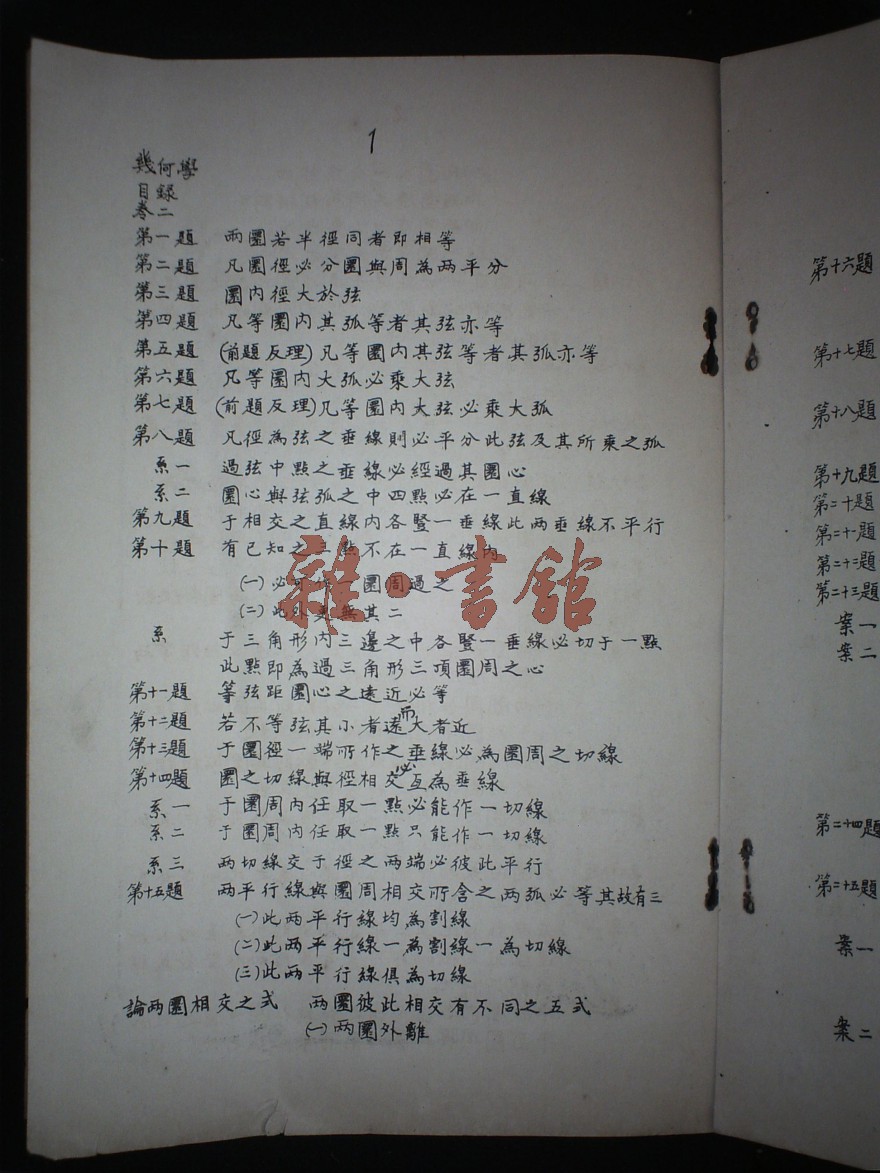 1
幾何學
目録
卷二
第一題 兩圜若半徑同者即相等
第二題 凡圜徑必分圜與周為两平分
第三題 圜内徑大於弦
第四題 凡等圜内其弧等者其弦亦等
第五題 (前題反理)凡等圜内其弦等者其弧亦等
第六題 凡等圜内大弧必乘大弦
第七題 (前題反理)凡等圜内大弦必乘大弧
第八題 凡徑為弦之垂線則必平分此弦及其所乘之弧
系一 過弦中點之垂線必經過其圜心
系二 圜心與弦弧之中四點必在一直線
第九題 于相交之直線内各豎一垂線此两垂線不平行
第十題 有已知之三點不在一直線内
(一)必可作一圜周過之
(二)此外更無其二
系 于三角形内三邊之中各豎一垂線必切于一點
此點即為過三角形三項圜周之心
第十一題 等弦距圜心之遠近必等
第十二題 若不等弦其小者遠而大者近
第十三題 于圜徑一端所作之垂線必為圜周之切線
第十四題 圜之切線與徑相交必互為垂線
系一 于圜周内任取一點必能作一切線
系二 于圜周内任取一點只能作一切線
系三 两切線交于徑之两端必彼此平行
第十五題 两平行線與圜周相交所含之两弧必等其故有三
(一)此两平行線均為割線
(二)此两平行線一為割線一為切線
(三)此两平行線俱為切線
論两圜相交之式 两圜彼此相交有不同之五式
(一)两圜外離
第十六題
第十七題
第十八題
第十九題
第二十題
第二十一題
第二十二題
第二十三題
案一
案二
第二十四題
第二十五題
案一
案二
雜·書館